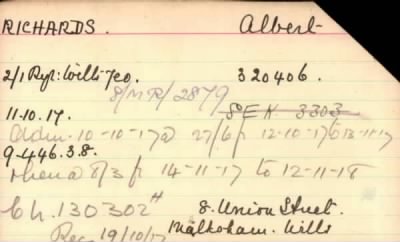 RICHARDS. Albert
2/1 Ryl: Wilts Yeo. 320406.
8/MR/2879
11.10.17. SEK 3303
Adm. 10-10-17 @ 27/6 f 12-10-17 to 13-11-17
9-446.3.8.
then @ 8/3 f 14-11-17 to 12-11-18
Ch. 130302 H 8. Union Street.
Reg 19/10/17 Malksham. Wilts